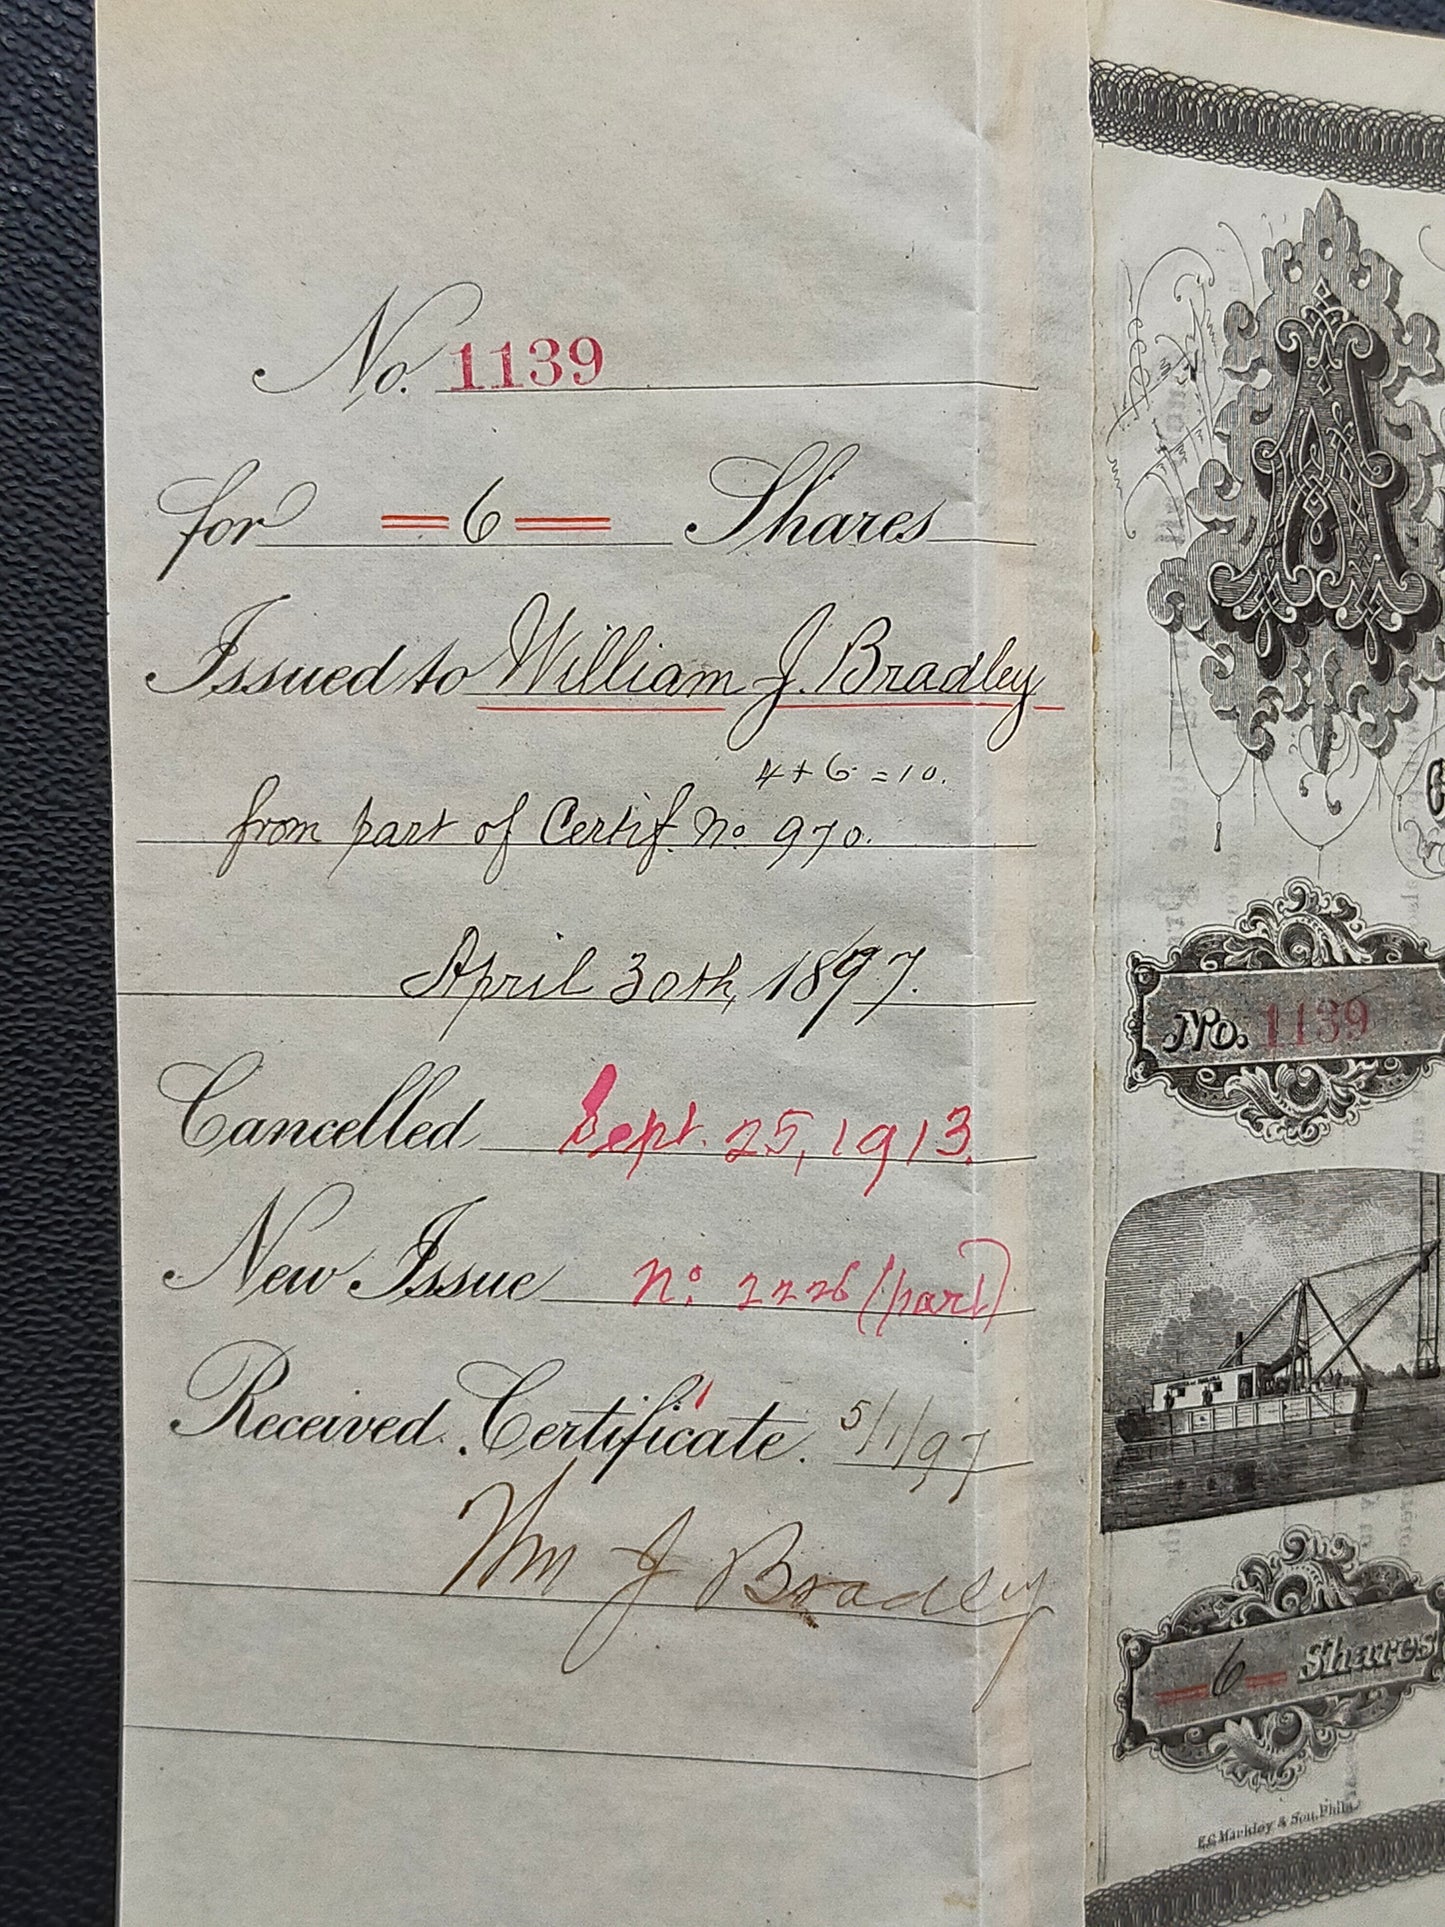 No. 1139
for = 6 = Shares
Issued to William J. Bradley
4 + 6 = 10.
from part of Certif. No 970.
April 30th, 1897.
Cancelled Sept. 25, 1913.
New Issue No. 2226 (part)
Received Certificate. 5/1/97
Wm J Bradley
A
No. 1139
= 6 = Shares
E.C. Markley & Son, Phila.